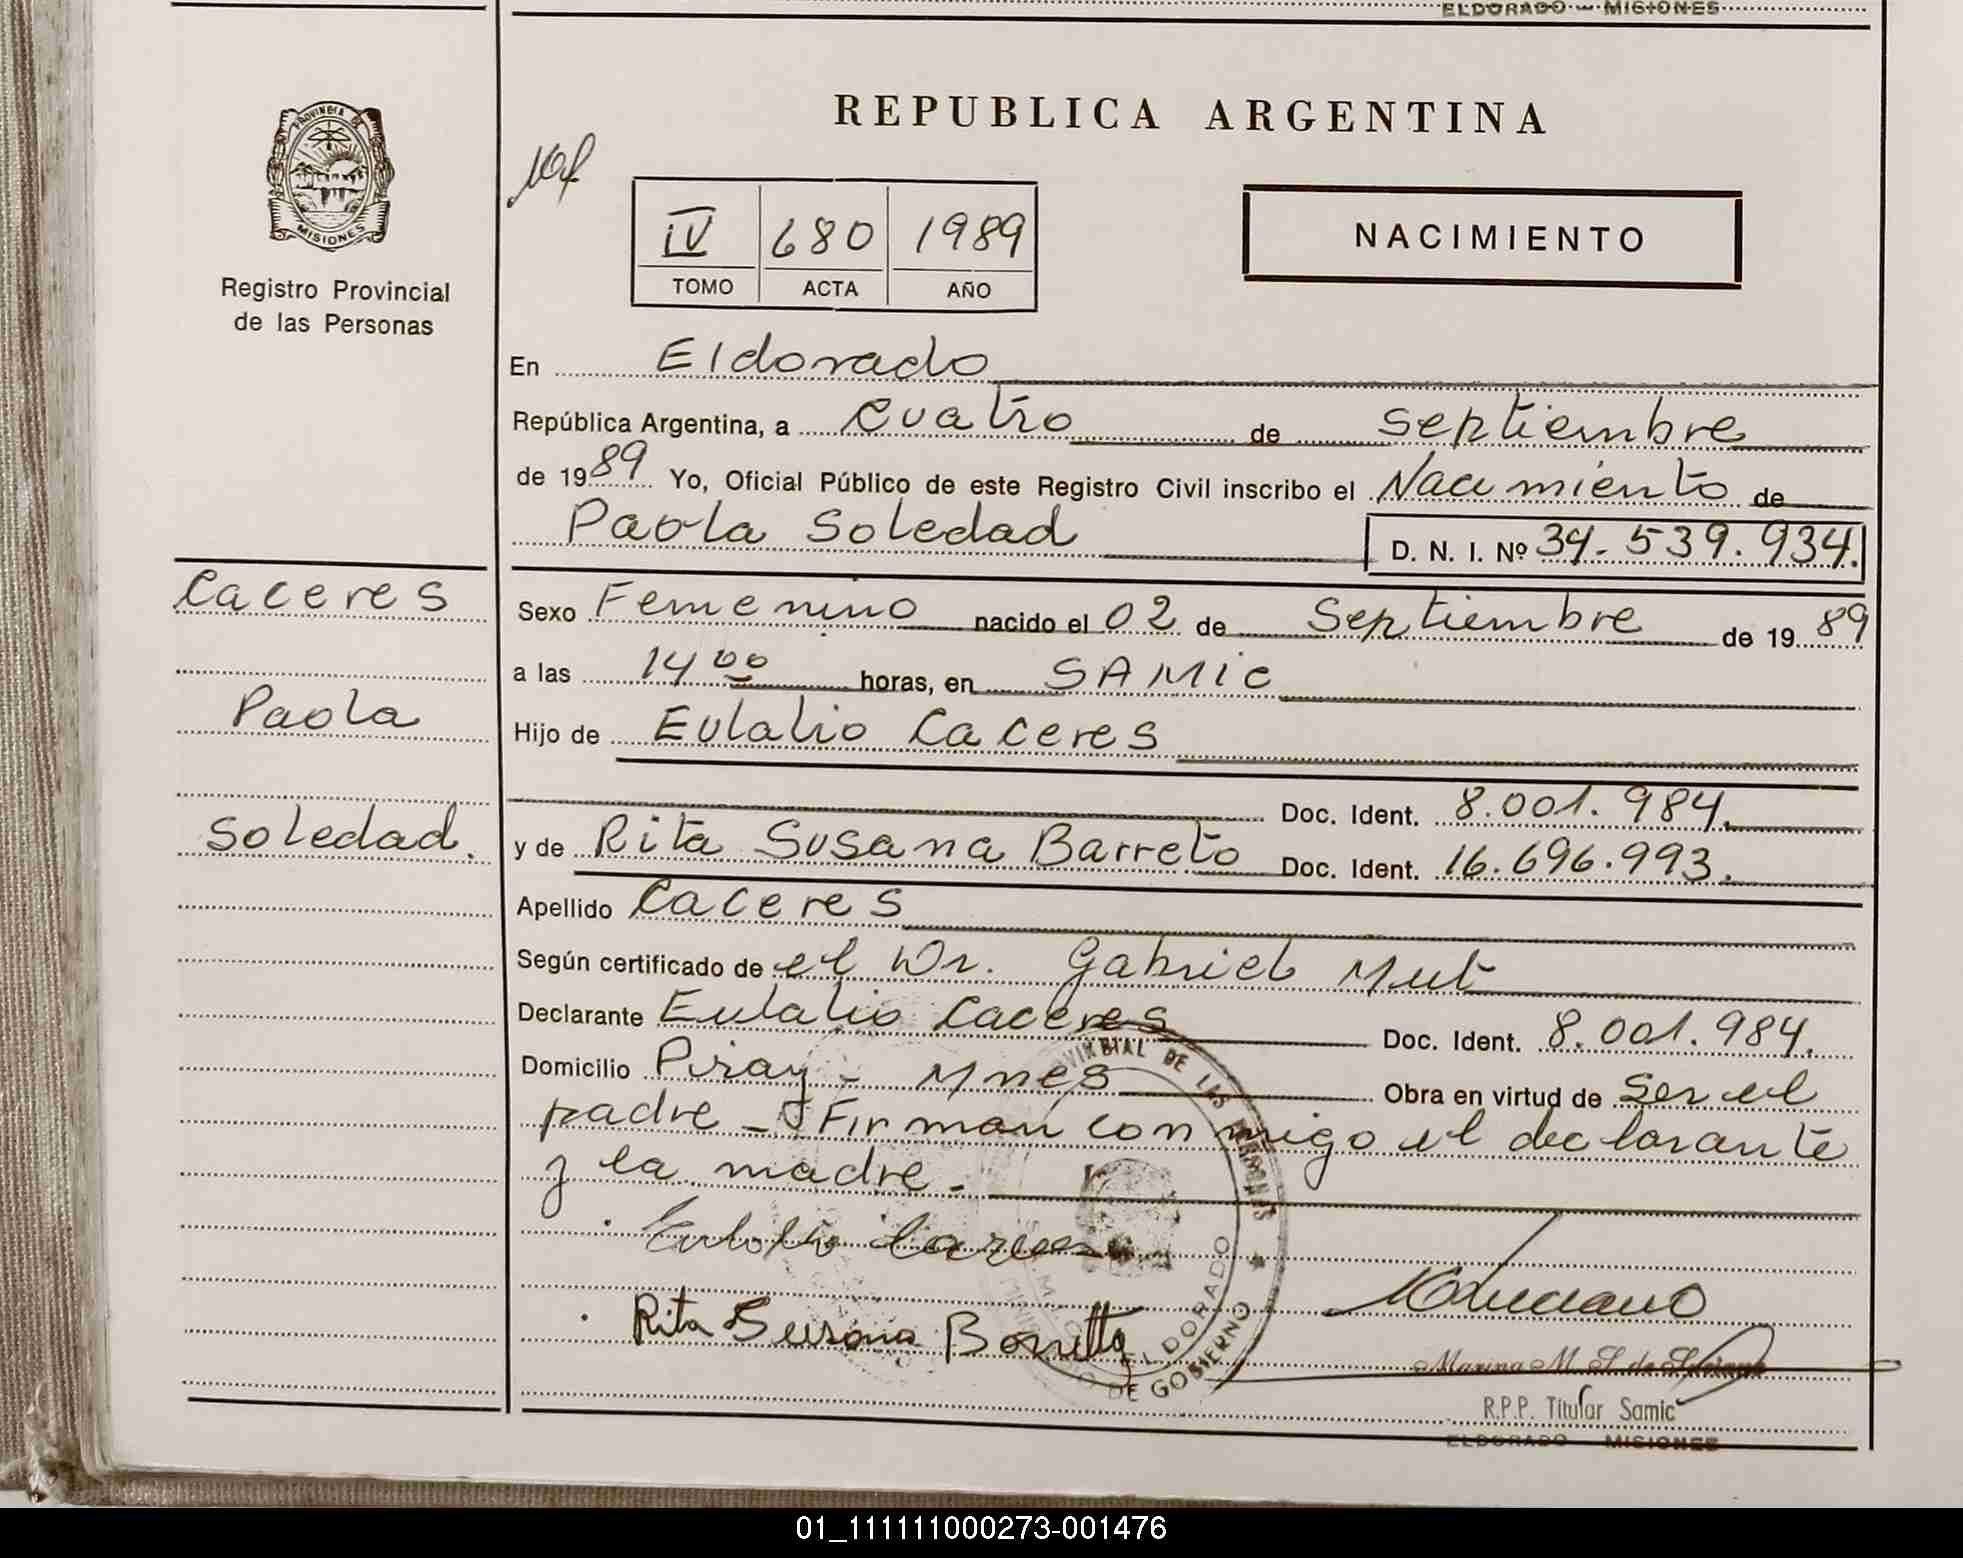 ELDORADO - MISIONES
REPUBLICA ARGENTINA
PROVINCIA DE
MISIONES
Registro Provincial
de las Personas
IV 680 1989
TOMO ACTA AÑO
NACIMIENTO
En Eldorado
República Argentina, a Cuatro de septiembre
de 1989 Yo, Oficial Público de este Registro Civil inscribo el Nacimiento de
Paola Soledad D. N. I. Nº 34.539.934.
Caceres
Paola
Soledad.
Sexo Femenino nacido el 02 de Septiembre de 1989
a las 14 00 horas, en SAMIC
Hijo de Eulalio Caceres
Doc. Ident. 8.001.984.
y de Rita Susana Barreto Doc. Ident. 16.696.993.
Apellido Caceres
Según certificado de el Dr. Gabriel Mut
Declarante Eulalio Caceres Doc. Ident. 8.001.984.
Domicilio Piray - Mnes Obra en virtud de ser el
padre - Firman conmigo el declarante
y la madre.-
Eulalio Caceres
Rita Susana Barretto
Marina M. S. de Luciano
R.P.P. Titular Samic
ELDORADO MISIONES
DE LAS PERSONAS
ELDORADO
DE GOBIERNO
01_111111000273-001476